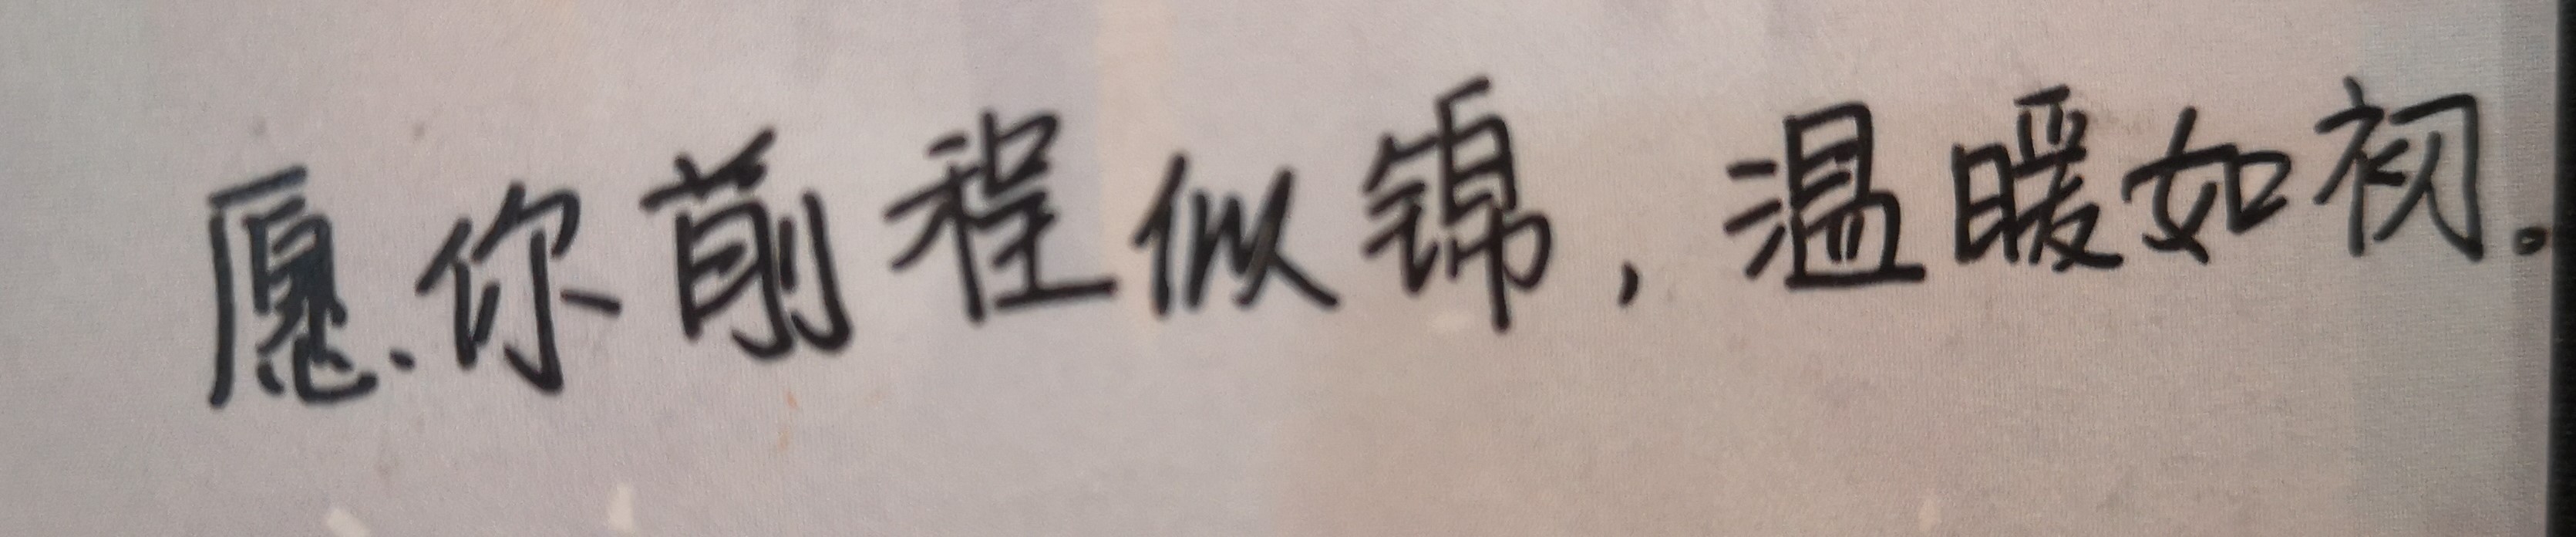 愿你前程似锦，温暖如初。